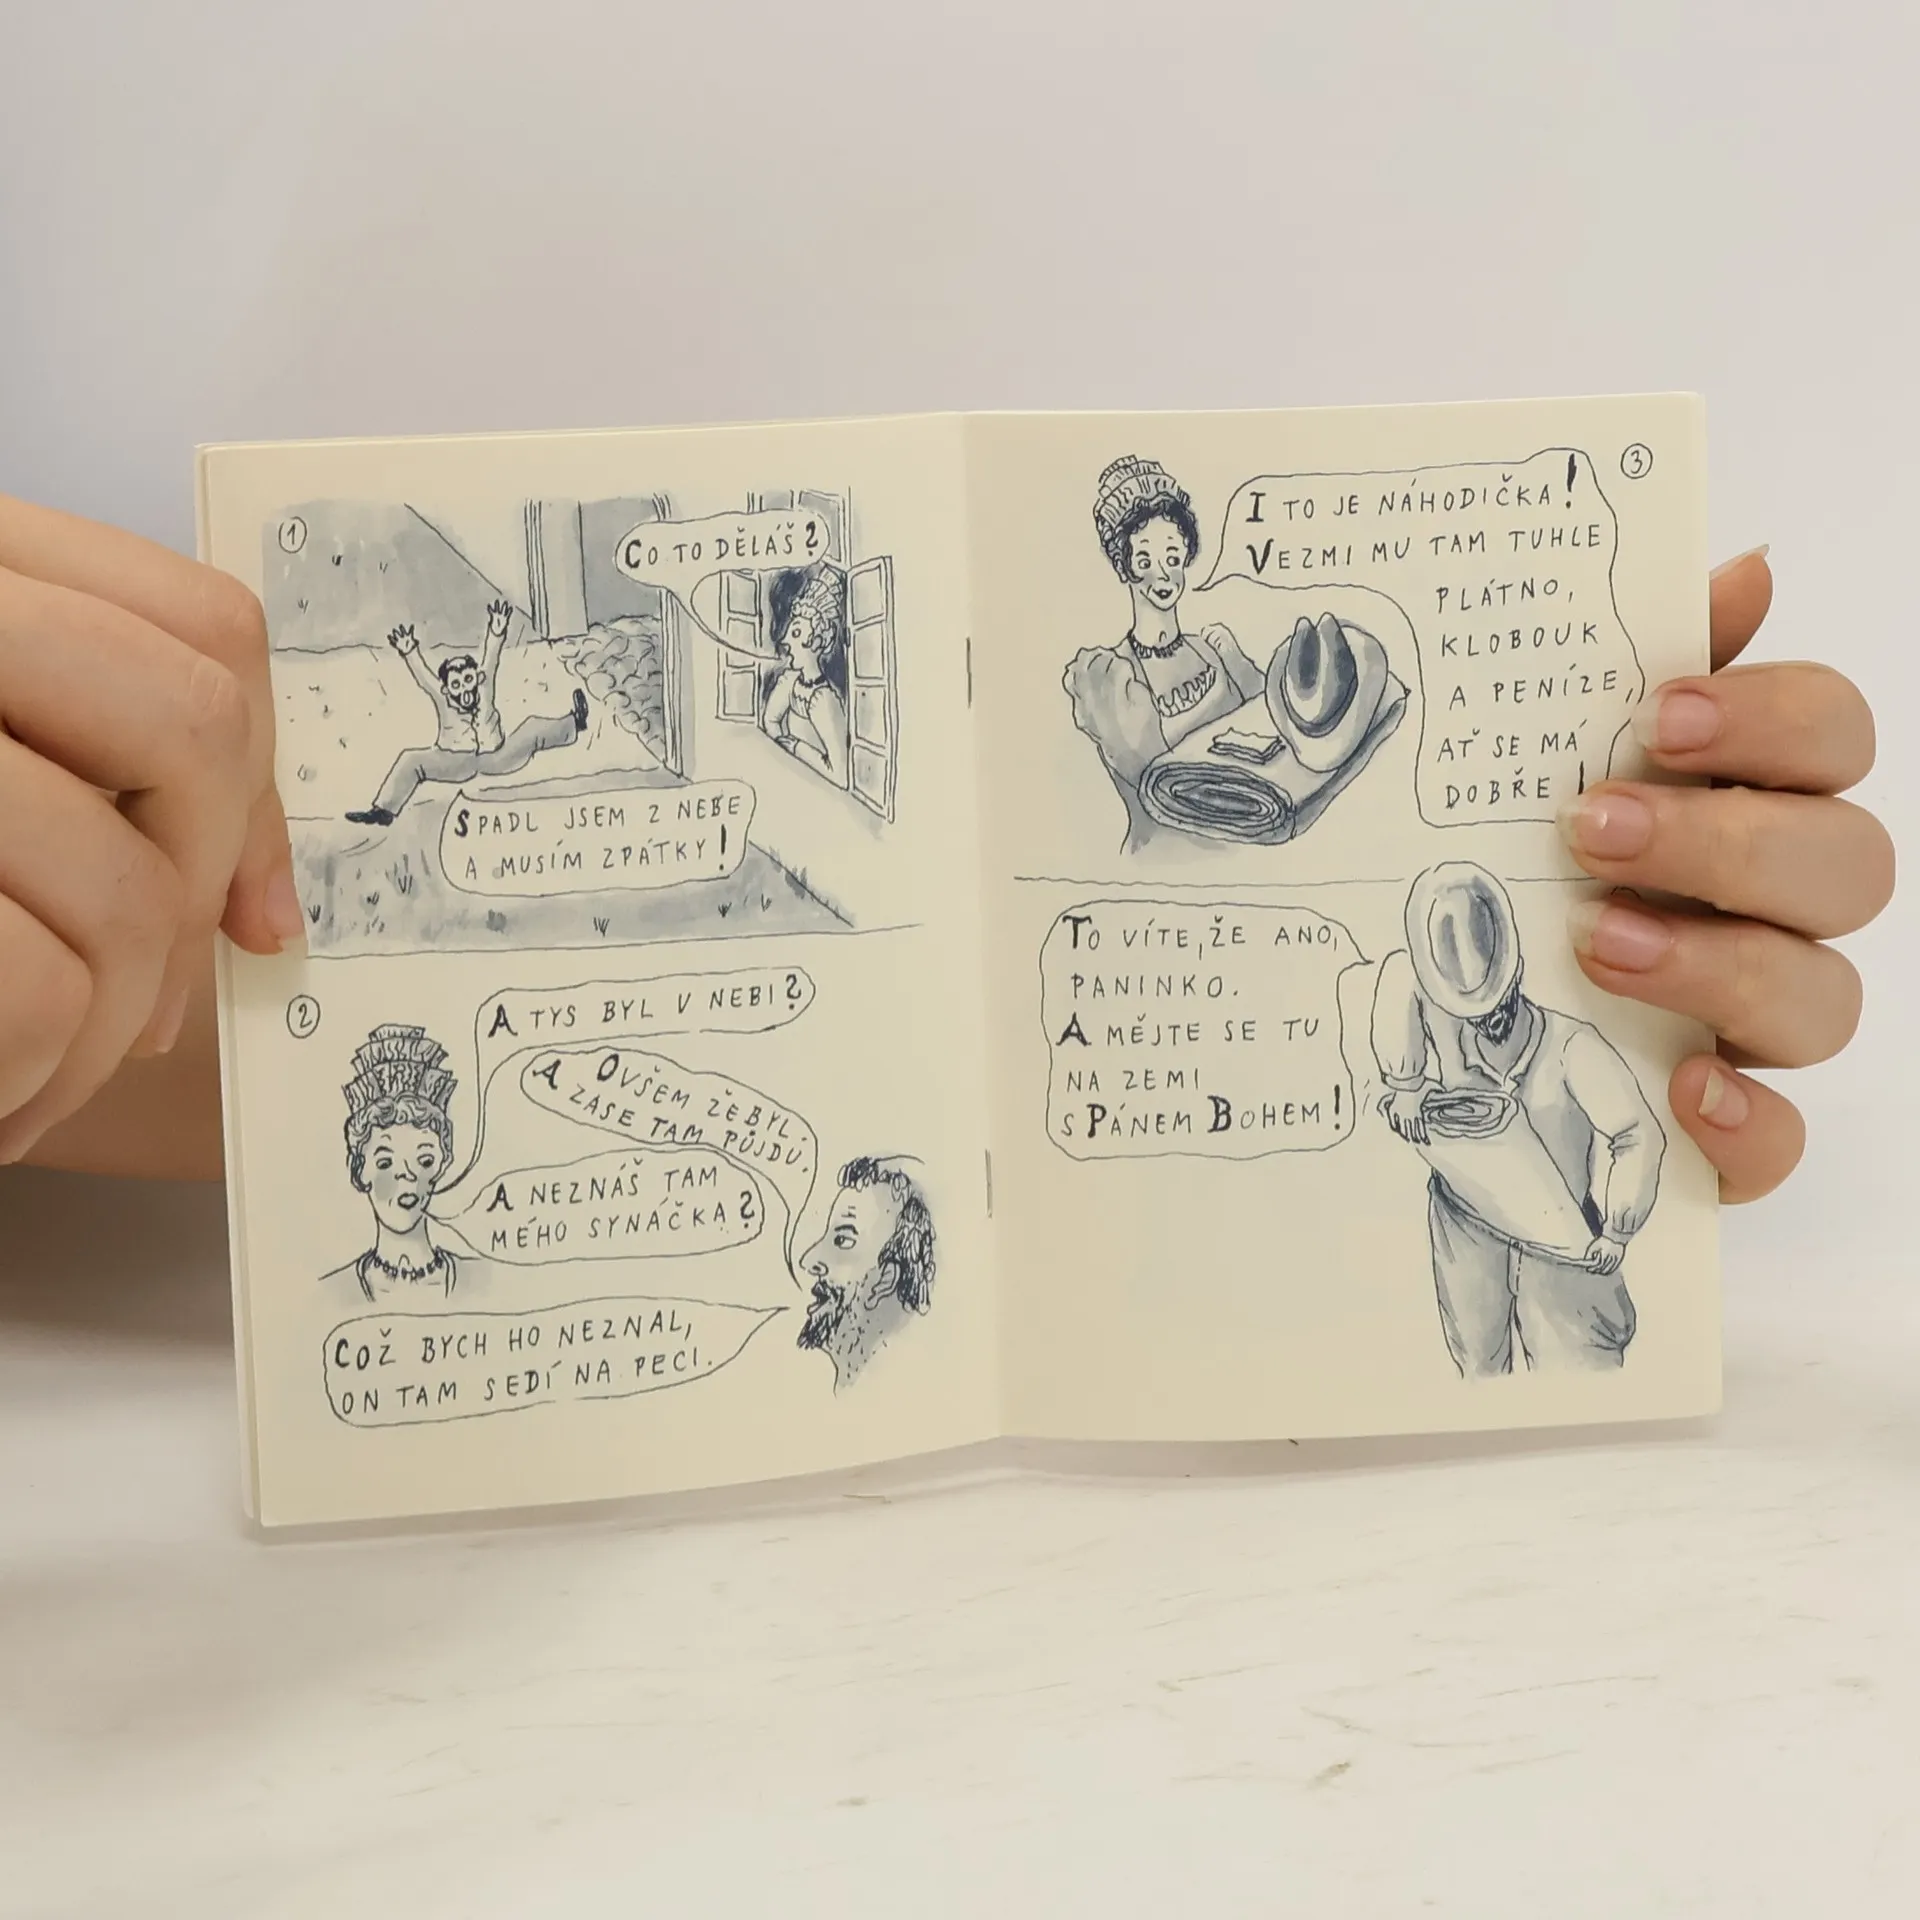 1
CO TO DĚLÁŠ?
SPADL JSEM Z NEBE
A MUSÍM ZPÁTKY!
2
A TYS BYL V NEBI?
A OVŠEM ŽE BYL.
A ZASE TAM PŮJDU.
A NEZNÁŠ TAM
MÉHO SYNÁČKA?
COŽ BYCH HO NEZNAL,
ON TAM SEDÍ NA PECI.
3
I TO JE NÁHODIČKA!
VEZMI MU TAM TUHLE
PLÁTNO,
KLOBOUK
A PENÍZE,
AŤ SE MÁ
DOBŘE!
TO VÍTE, ŽE ANO,
PANINKO.
A MĚJTE SE TU
NA ZEMI
S PÁNEM BOHEM!